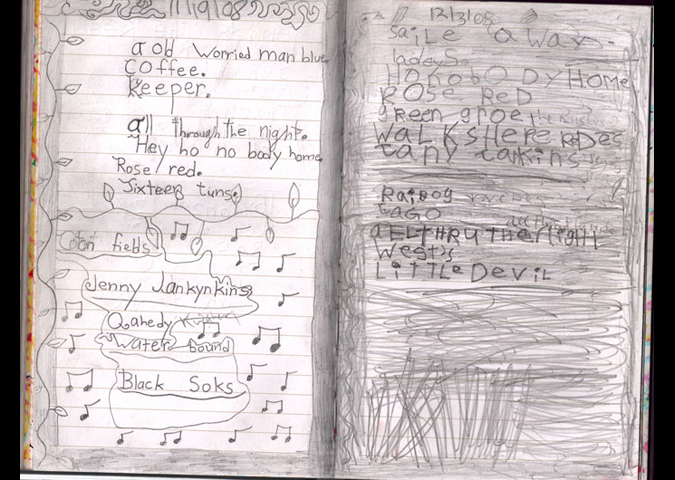 11/9/08
a old worried man blue
coffee.
keeper.
all through the night.
Hey ho no body home
Rose red.
Sixteen tuns
Coton fields
Jenny Jankynkins
Water bound
Black Soks
12/3/08
Saile a way
ladeys
HO NO BO DY HOME
ROSe ReD
green groe the
WaLKS HeRe
Raidog
taGO
aLL THRU THe Night
LiTTLe DeviL